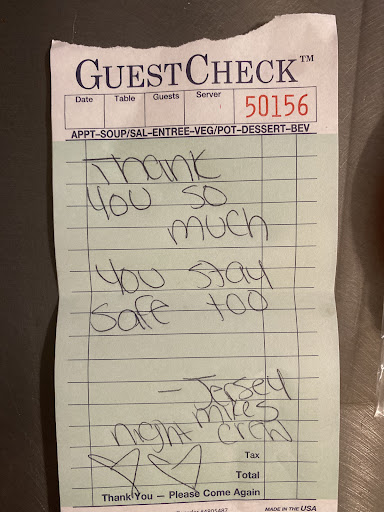 GUESTCHECK™
Date Table Guests Server 50156
APPT–SOUP/SAL–ENTREE–VEG/POT–DESSERT–BEV
Thank
you so
much
you stay
safe too
– Jersey
mikes
night crew
Tax
Total
Thank You — Please Come Again
MADE IN THE USA